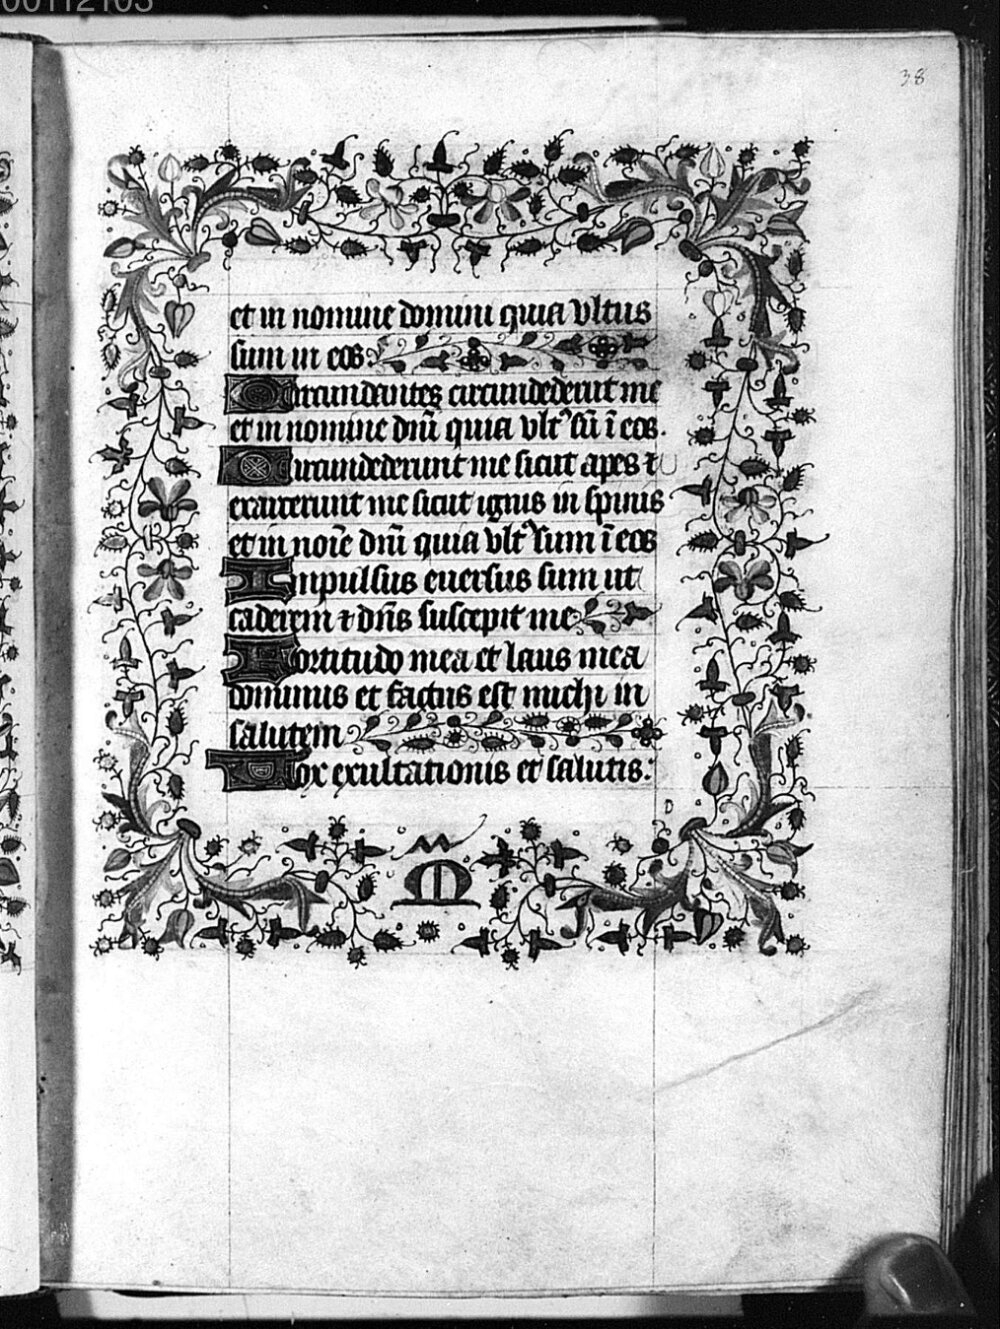 00112103
38
et in nomine domini quia vltus
sum in eos:
Circumdantes circumdederūt me
et in nomine dnī quia vltꝰ sū ī eos.
Circumdederunt me sicut apes ⁊
exarcerunt me sicut ignis in spinis
et in noīe dnī quia vltꝰ sum ī eos
Impulsus euersus sum ut
caderem ⁊ dn̄s suscepit me
Fortitudo mea et laus mea
dominus et factus est michi in
salutem
Vox exultationis et salutis:
D
M